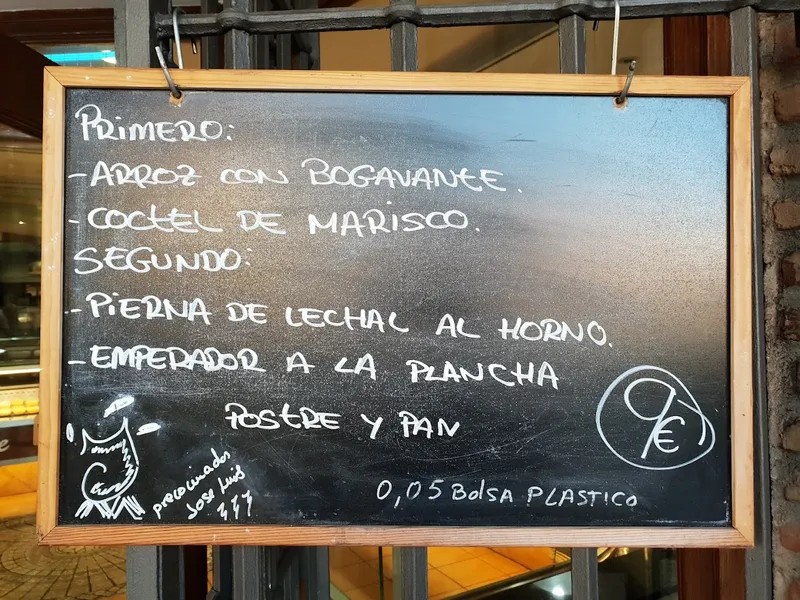 PRIMERO:
- ARROZ CON BOGAVANTE.
- COCTEL DE MARISCO.
SEGUNDO:
- PIERNA DE LECHAL AL HORNO.
- EMPERADOR A LA PLANCHA
POSTRE Y PAN
9€
precocinados
Jose Luis
0,05 Bolsa PLASTICO